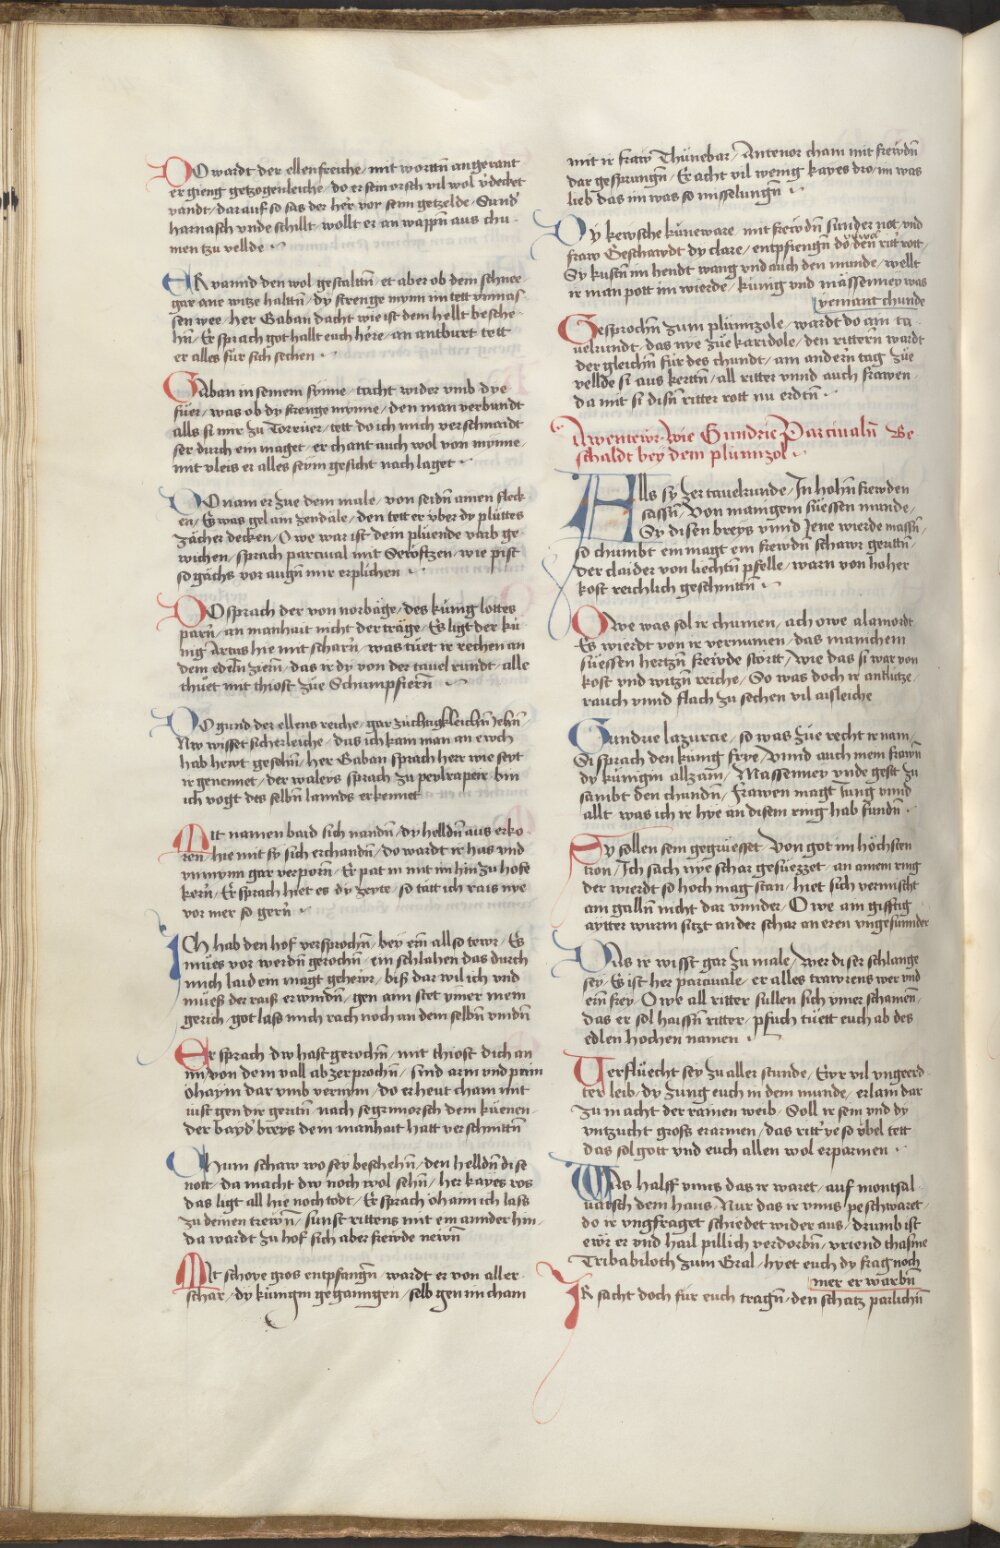 DO wardt der ellenfreiche / mit wortn̄ angerant
er gieng getzogenleiche / do er sein orsch vil wol v̈decket
vandt / darauf so sas der her vor sein getzelde / Sund'
harnasch vnde schillt / wollt er an wappn̄ aus chu
men tzu vellde
ER vannd den wol gestalltn̄ / et aber ob dem schnee
gar ane witze halltn̄ / dy strenge mynn im tett vnmas
sen wee / her Gaban dacht wie ist dem hellt besche
hn̄ / Er sprach got hallt euch here / an antburt tett
er alles für sich sechen
GAban in seinem synne / tacht wider vmb dye
füer / was ob dy strenge mynne / den man verbundt
alls si mir zu Torreuer / tett do ich mich verschnaidt
ser durch ein maget / er chant auch wol von mynne
mit vleis er alles seym gesicht nach laget
DO nam er zue dem male / von seidn̄ ainen fleck
en / Es was gel am zendale / den tett er v̈ber dy plüttes
zächer decken / O we war ist dem plüende varb ge
wichen / sprach parcival mit Sewftzen / wie pist
so gächs vor augn̄ mir erplichen
DO sprach der von norbäge / des küng lottes
parn̄ / an manhait nicht der träge / Es ligt der kü
nig Artus hie mit scharn̄ / was tüet ir rechen an
dem edeln̄ ziern̄ / das ir dy von der tauelrundt / alle
thüet mit thiost züe Schumpfiern̄
DO gund der ellens reiche / gar züchtigkleichn̄ iehn̄
Nw wisset sicherleiche / das ich kam man an euch
hab hewt geschn̄ / her Gaban sprach herr wie seyt
ir genennet / der waleys sprach zu peylrapeir bin
ich vogt des selbn̄ lannds erkennet
MIt namen baid sich nandn̄ / dy helldn̄ aus erko
ren / hie mit sy sich erchandn̄ / do wardt ir has vnd
vnmynn gar verporn̄ / Er pat in mit im hin zu hofe
kern̄ / Er sprach hiet es dy zeyte / so tätt ich rais nye
vor mer so gern̄
ICh hab den hof versprochn̄ / bey ein allso tewr / Es
mües vor werdn̄ gerochn̄ / ein schlahen das durch
mich laid ein magt geheiwr / biß dar wil ich vnd
müeß der raiß erwindn̄ / gen ann stet ymer mein
gerich / got lass mich rach noch an dem selbn̄ vindn̄
Er sprach dw hast gerochn̄ / mit thiost dich an
im / von dem vall ab zerprochn̄ / sind arm vnd pain
öhaym dar vmb vernym / do er heut cham mit
iust gen dir geritn̄ / nach segrimorsch dem küenen
der bayd breys dem manhait hatt verschnittn̄
Chum schaw wo sey beschehn̄ / den helldn̄ dise
nott / da macht dw noch wol sehn̄ / her kayes ros
das ligt all hie noch todt / Er sprach öhaim ich lass
zu deinen trewn̄ / sunst rittens mit ein annder hin
da wardt zu hof sich aber frewde newn̄
MIt schoye gros entpfangn̄ / wardt er von aller
schar / dy künigin gegangen / selb gen im cham
mit ir fraw Thünebar / Antenor cham mit frewdn̄
dar gesprungn̄ / Er acht vil wenig kayes dro / im was
lieb das im was so misselungn̄
DY kewsche küneware / mit frewdn̄ sunder not / vnd
fraw Geschawdt dy clare / entpfiengn̄ do den ritt' rott
Sy kustn̄ im hendt wang vnd auch den munde / wellt
ir man pott im wierde / künig vnd mässeney was
yemant chunde
Gesprochn̄ zum plümizole / wardt do ain ta
uelrundt / das nye züe karidole / den rittern̄ wardt
der gleichn̄ für des chundt / am andern tag züe
vellde si aus kertn̄ / all ritter vnnd auch frawen
da mit si disn̄ ritter rott nu erdtn̄
Awentewr wie Gundrie Parciualn̄ Be
schaldt bey dem plümizol
ALls sy zer tauelrunde / In hohn̄ frewden
sassn̄ / Von manigem süessen munde /
Sy disen breys vnnd Jene wierde massn̄
so chumbt ein magt ein frewdn̄ schawr gerittn̄
der claider von liechtn̄ pfelle / warn von hoher
kost reichlich geschnittn̄
OWe was sol ir chumen / ach owe alamordt
Es wierdt von ir vernumen / das manichem
süessen hertzn̄ frewde stortt / Wie das si war von
kost vnd witzn̄ reiche / So was doch ir antlütze
rauch vnnd flach zu sechen vil aisleiche
Gundrie lazurcie / so was züe recht ir nam
Si sprach den künig frye / vnnd auch mein frawn̄
dy künigin allzam / Massenney vnde gest zu
sambt den chundn̄ / frawen magt Jung vnnd
allt was ich ir hye an disem ring hab fundn̄
Sy sollen sein gegrüesset / Von got im höchsten
tron / Ich sach nye schar gesüezzet / an ainem ring
der wierdt so hoch mag stan / hiet sich vermischt
ain galln̄ nicht dar vnnder / O we ain gifftig
aytter wurm sitzt an der schar an eren vngesunnder
DAs ir wisst gar zu male / wer diser schlange
sey / Es ist her parciuale / er alles trawrens wer vnd
ein frey / O we all ritter süllen sich ymer schamen
das er sol haissn̄ ritter / pfuch tüett euch ab des
edlen hochen namen
Verflüecht sey zu aller stunde / Ewr vil vngeerd
ter leib / dy zung euch in dem munde / erlam dar
zu in acht der rainen weib / Soll ir sein vnd dy
vntzucht gross erarnen / das ritt' ye so v̈bel tett
das sol gott vnd euch allen wol erparmen
WAs halff vnns das ir waret / auf montsal
uatsch dem haus / Nur das ir vnns pe schwaret
do ir vngfraget schiedet wider aus / drumb ist
ewr er vnd hail pillich verdorbn̄ / vriend thasme
Tribabiloch zum Gral / hyet euch dy frag noch
mer er warbn̄
IR sacht doch für euch tragn̄ / den schatz parlichn̄